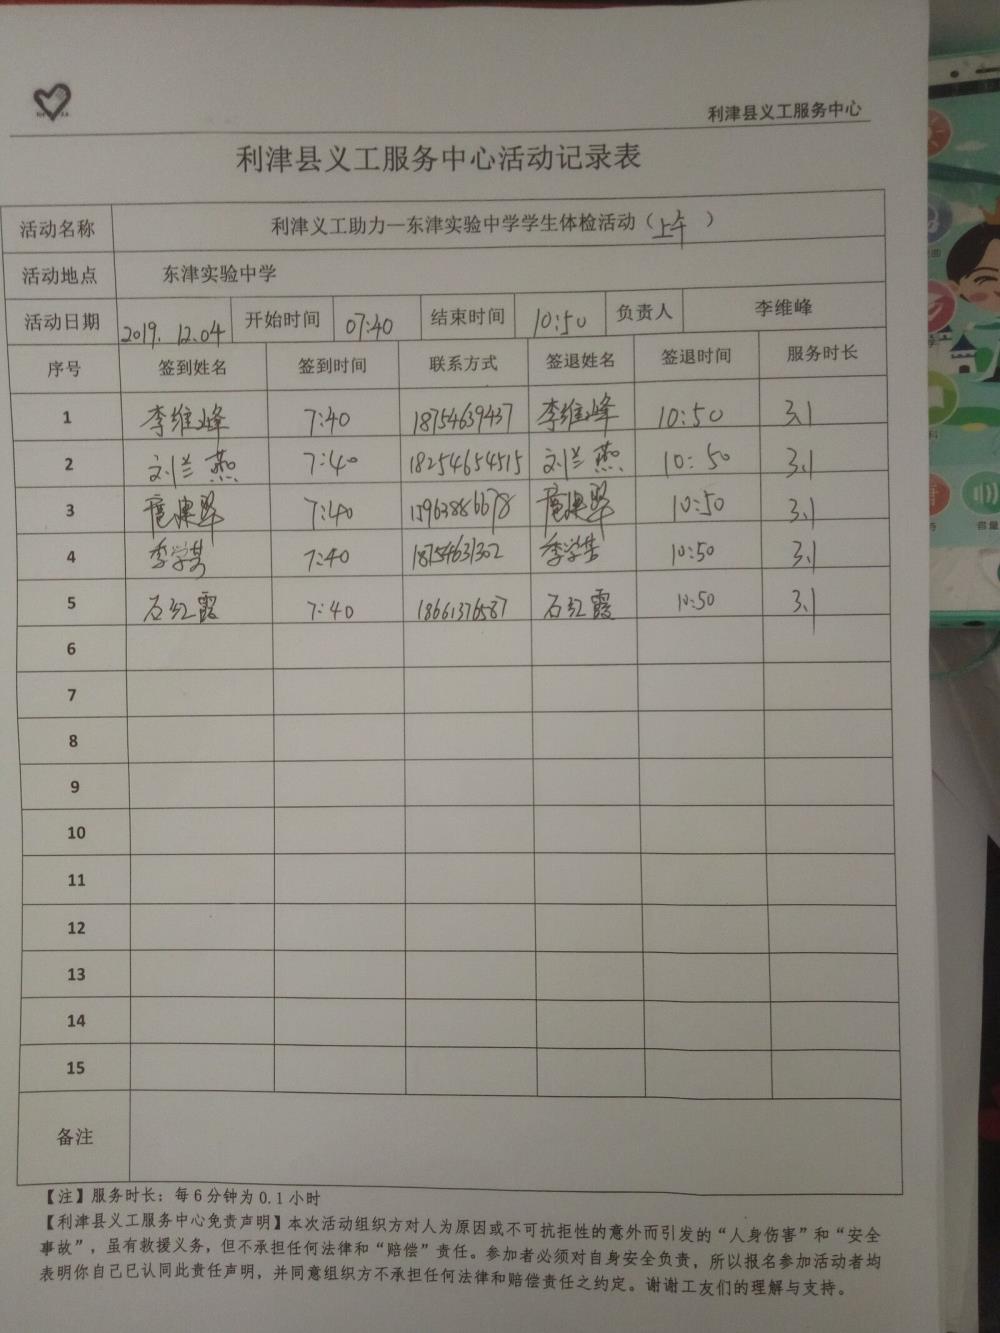 利津县义工服务中心
利津县义工服务中心活动记录表
活动名称 利津义工助力—东津实验中学学生体检活动（上午）
活动地点 东津实验中学
活动日期 2019.12.04 开始时间 07:40 结束时间 10:50 负责人 李维峰
序号 签到姓名 签到时间 联系方式 签退姓名 签退时间 服务时长
1 李维峰 7:40 18754639437 李维峰 10:50 3.1
2 刘兰燕 7:40 18254654515 刘兰燕 10:50 3.1
3 7:40 15963886678 10:50 3.1
4 7:40 18754631302 10:50 3.1
5 石红霞 7:40 18661376587 石红霞 10:50 3.1
6
7
8
9
10
11
12
13
14
15
备注
【注】服务时长：每6分钟为0.1小时
【利津县义工服务中心免责声明】本次活动组织方对人为原因或不可抗拒性的意外而引发的“人身伤害”和“安全
事故”，虽有救援义务，但不承担任何法律和“赔偿”责任。参加者必须对自身安全负责，所以报名参加活动者均
表明你自己已认同此责任声明，并同意组织方不承担任何法律和赔偿责任之约定。谢谢工友们的理解与支持。